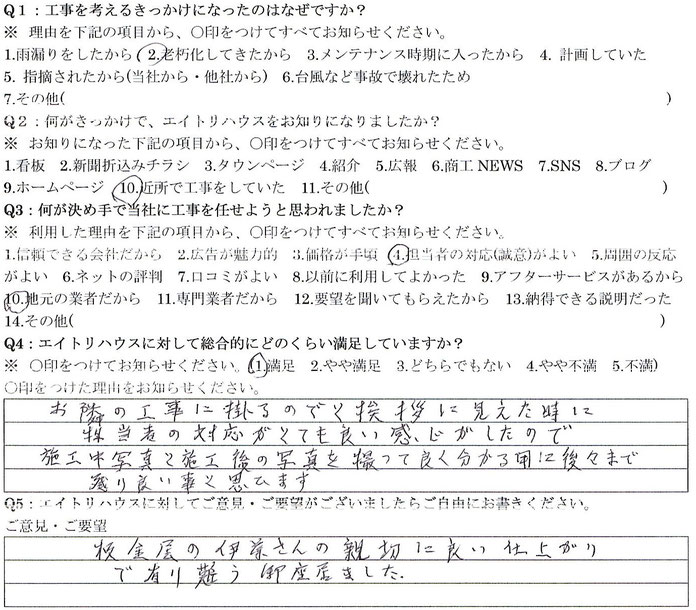 Q1：工事を考えるきっかけになったのはなぜですか？
※ 理由を下記の項目から、〇印をつけてすべてお知らせください。
1.雨漏りをしたから 2.老朽化してきたから 3.メンテナンス時期に入ったから 4. 計画していた
5. 指摘されたから(当社から・他社から) 6.台風など事故で壊れたため
7.その他( )
Q2：何がきっかけで、エイトリハウスをお知りになりましたか？
※ お知りになった下記の項目から、〇印をつけてすべてお知らせください。
1.看板 2.新聞折込みチラシ 3.タウンページ 4.紹介 5.広報 6.商工 NEWS 7.SNS 8.ブログ
9.ホームページ 10.近所で工事をしていた 11.その他( )
Q3：何が決め手で当社に工事を任せようと思われましたか？
※ 利用した理由を下記の項目から、〇印をつけてすべてお知らせください。
1.信頼できる会社だから 2.広告が魅力的 3.価格が手頃 4.担当者の対応(誠意)がよい 5.周囲の反応
がよい 6.ネットの評判 7.口コミがよい 8.以前に利用してよかった 9.アフターサービスがあるから
10.地元の業者だから 11.専門業者だから 12.要望を聞いてもらえたから 13.納得できる説明だった
14.その他( )
Q4：エイトリハウスに対して総合的にどのくらい満足していますか？
※ 〇印をつけてお知らせください。(1.満足 2.やや満足 3.どちらでもない 4.やや不満 5.不満)
〇印をつけた理由をお知らせください。
お隣の工事に掛るのでと挨拶に見えた時に
担当者の対応がとても良い感じがしたので
施工中写真と施工後の写真を撮って良く分かる用に後々まで
残り良い事と思ひます
Q5：エイトリハウスに対してご意見・ご要望がございましたらご自由にお書きください。
ご意見・ご要望
板金屋の伊藤さんの親切に良い仕上がり
で有り難う御座居ました.